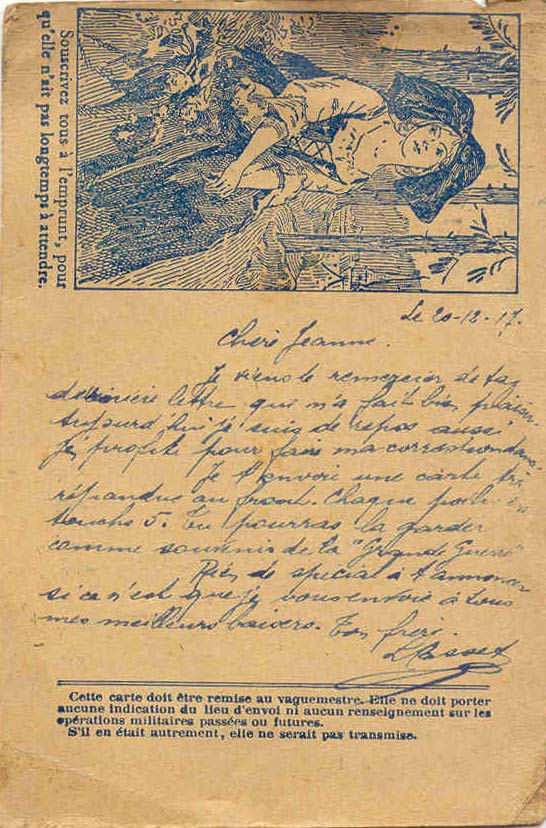 Souscrivez tous à l'emprunt, pour
qu'elle n'ait pas longtemps à attendre.
Le 20-12-17.
Chère Jeanne.
Je viens te remercier de ta
dernière lettre qui m'a fait bien plaisir.
Aujourd'hui je suis de repos aussi
j'en profite pour faire ma correspondance.
Je t'envoie une carte très
répandue au front. Chaque poilu en
touche 5. Tu pourras la garder
comme souvenir de la "Grande Guerre"
Rien de spécial à t'annoncer
si ce n'est que je vous envoie à tous
mes meilleurs baisers. Ton frère.
Cette carte doit être remise au vaguemestre. Elle ne doit porter
aucune indication du lieu d'envoi ni aucun renseignement sur les
opérations militaires passées ou futures.
S'il en était autrement, elle ne serait pas transmise.